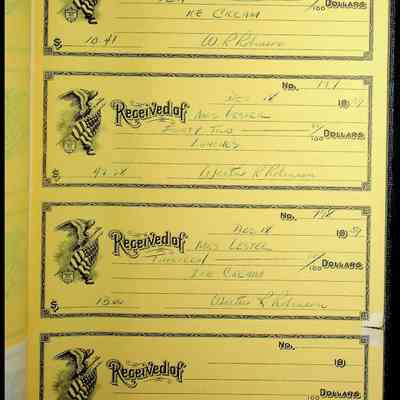 100 DOLLARS
ICE CREAM
$ 10.41 W. R. Robinson
No. 197
Dec 18 1959
Received of Mrs Lester
Forty Two /100 DOLLARS
Lunches
$ 42.00 Walter R Robinson
No. 198
Dec 18 1959
Received of Mrs Lester
Thirteen /100 DOLLARS
Ice Cream
$ 13.00 Walter R Robinson
No. 19
Received of
100 DOLLARS